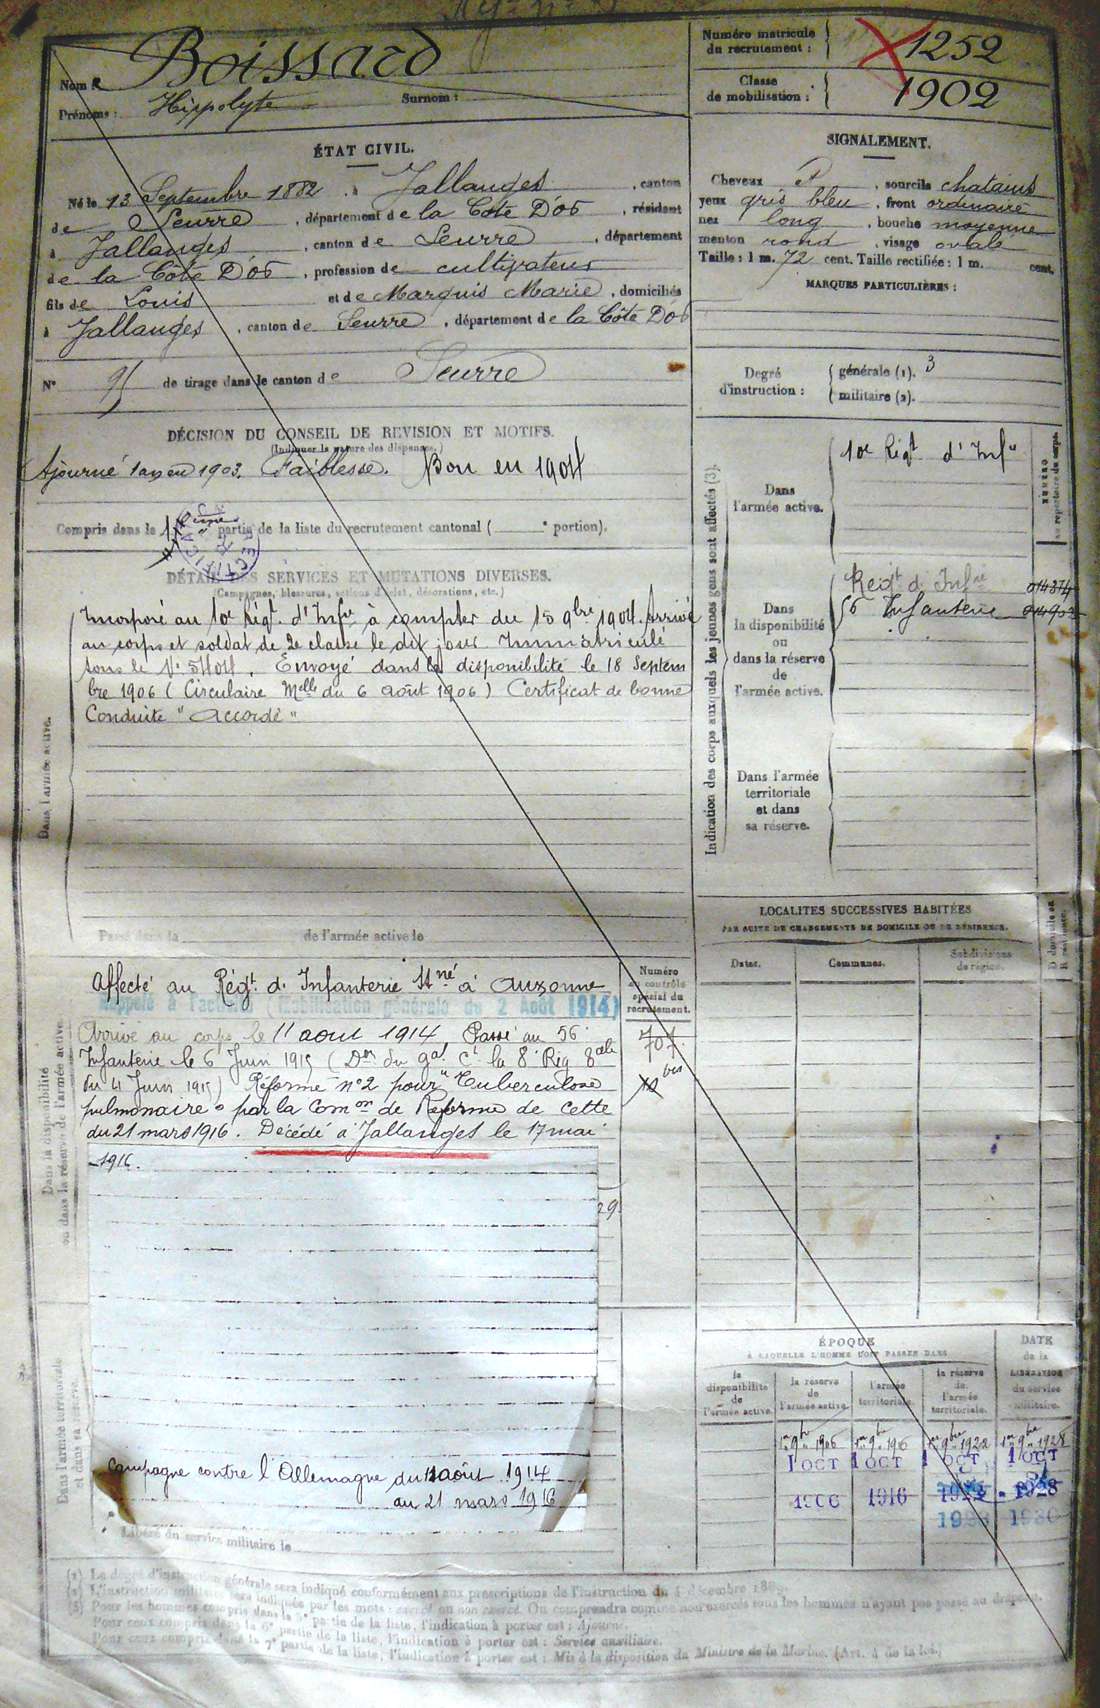 Nom : Boissard
Prénoms : Hippolyte Surnom :
Numéro matricule du recrutement : 1252
Classe de mobilisation : 1902
ÉTAT CIVIL.
Né le 13 Septembre 1882, à Jallanges, canton
de Seurre, département de la Côte D'Or, résidant
à Jallanges, canton de Seurre, département
de la Côte D'Or, profession de cultivateur
fils de Louis et de Marquis Marie, domiciliés
à Jallanges, canton de Seurre, département de la Côte D'Or
N° 91 de tirage dans le canton de Seurre
SIGNALEMENT.
Cheveux , sourcils chatains
yeux gris bleu, front ordinaire
nez long, bouche moyenne
menton rond, visage ovale
Taille : 1 m. 72 cent. Taille rectifiée : 1 m. cent.
MARQUES PARTICULIÈRES :
Degré d'instruction : générale (1). 3
militaire (2).
DÉCISION DU CONSEIL DE REVISION ET MOTIFS.
(Indiquer la nature des dispenses.)
Ajourné 1 an en 1903. Faiblesse. Bon en 1904
Compris dans le partie de la liste du recrutement cantonal ( ° portion).
DÉTAIL DES SERVICES ET MUTATIONS DIVERSES.
(Campagnes, blessures, actions d'éclat, décorations, etc.)
Dans l'armée active.
Incorporé au 10e Régt. d'Infie à compter du 15 9bre 1904. Arrivé
au corps et soldat de 2e classe le dit jour Immatriculé
sous le N° 5404. Envoyé dans la disponibilité le 18 Septem
bre 1906 (Circulaire Melle du 6 août 1906) Certificat de bonne
Conduite "accordé"
Passé dans la de l'armée active le
Indication des corps auxquels les jeunes gens sont affectés (3).
NUMÉRO au répertoire du corps.
Dans l'armée active.
10e Régt d'Infie
Dans la disponibilité ou dans la réserve de l'armée active.
Régt d'Infie 014374
56 Infanterie
Dans l'armée territoriale et dans sa réserve.
LOCALITES SUCCESSIVES HABITÉES
PAR SUITE DE CHANGEMENTS DE DOMICILE OU DE RÉSIDENCE.
Dates. Communes. Subdivisions de région. D domicile ou R résidence.
Dans la disponibilité ou dans la réserve de l'armée active.
Numéro au contrôle spécial du recrutement.
Affecté au Régt. d'Infanterie St né à Auxonne
Rappelé à l'activité (Mobilisation générale du 2 Août 1914)
Arrivé au corps le 11 aout 1914, Passé au 56
Infanterie le 6 Juin 1915 (Don du gal Ct la 8 Rég
du 4 Juin 1915) Réformé n°2 pour "Tuberculose
pulmonaire" par la Comon de Réforme de cette
du 21 mars 1916. Décédé à Jallanges le 17 mai
1916.
707
bis
29
Dans l'armée territoriale et dans sa réserve.
Campagne contre l'Allemagne du 11 août 1914
au 21 mars 1916
Libéré du service militaire le
ÉPOQUE
À LAQUELLE L'HOMME DOIT PASSER DANS
DATE de la LIBÉRATION du service militaire.
la disponibilité de l'armée active.
la réserve de l'armée active.
l'armée territoriale.
la réserve de l'armée territoriale.
1er 9bre 1906 1er 9bre 1916 1er 9bre 1922 1er 9bre 1928
1 OCT 1 OCT 1 OCT 1 OCT
1906 1916 1922 1928
(1) Le degré d'instruction générale sera indiqué conformément aux prescriptions de l'instruction du 4 décembre 1889.
(2) L'instruction militaire sera indiquée par les mots : exercé ou non exercé. On comprendra comme non exercés tous les hommes n'ayant pas passé au drapeau.
(3) Pour les hommes compris dans la 5e partie de la liste, l'indication à porter est : Ajourné.
Pour ceux compris dans la 6e partie de la liste, l'indication à porter est : Service auxiliaire.
Pour ceux compris dans la 7e partie de la liste, l'indication à porter est : Mis à la disposition du Ministre de la Marine. (Art. 4 de la loi.)